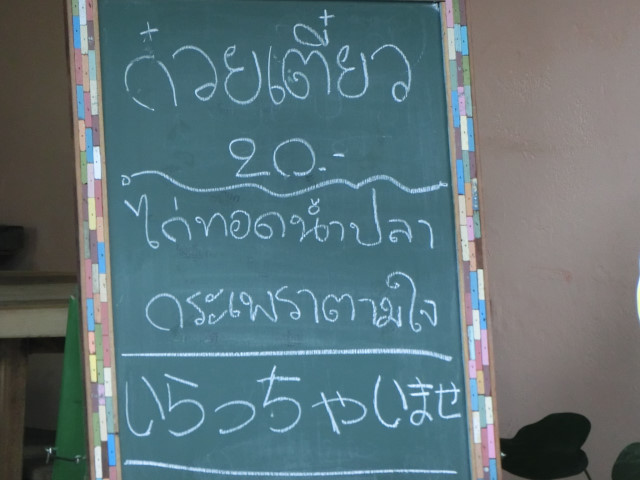 ก๋วยเตี๋ยว
20.-
ไก่ทอดน้ำปลา
กระเพราตามใจ
いらっちゃいませ